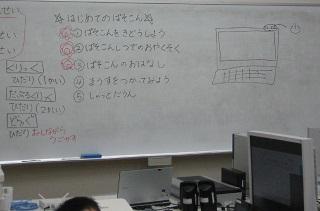 せい
せい
☆はじめてのぱそこん☆
①ぱそこんをきどうしよう
②ぱそこんしつでのおやくそく
③ぱそこんのおはなし
④まうすをつかってみよう
⑤しゃっとだうん
くりっく
ひだり(1かい)
だぶるくりっく
ひだり(2かい)
どらっぐ
ひだりおしながら
うごかす